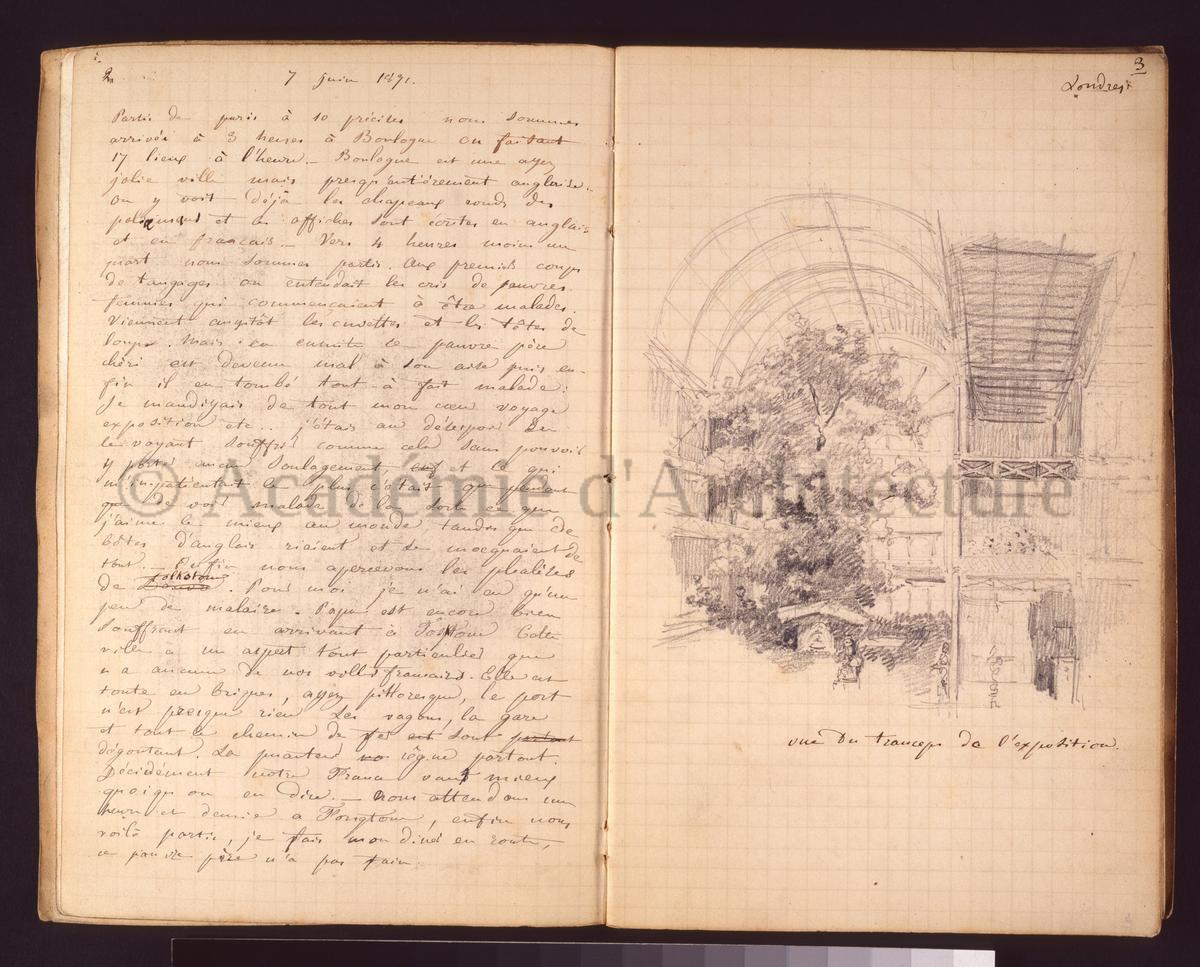 2
7 juin 1891.
Partis de paris à 10 précises nous sommes
arrivés à 3 heures à Boulogne en faisant
17 lieues à l'heure _ Boulogne est une assez
jolie ville mais presqu'entièrement anglaise.
on y voit déjà les chapeaux ronds des
et les affiches sont écrites en anglais
et en français _ Vers 4 heures moins un
quart nous sommes partis. Aux premiers coups
de tangages on entendait les cris de pauvres
femmes qui commençaient à être malades.
Viennent aussitôt les cuvettes et les têtes de
loups. Mais en ensuite ce pauvre père
chéri est devenu mal à son aise puis en-
fin il est tombé tout à fait malade.
Je maudissais de tout mon cœur voyage
exposition etc.. j'étais au désespoir en
le voyant souffrir comme cela sans pouvoir
y porter aucun soulagement, et ce qui
m'impatientait le plus c'était que pendant
que de voir malade de la sorte ce que
j'aime le mieux au monde tandis que de
bêtes d'anglais riaient et se moquaient de
tout. _ Enfin nous apercevons les phalèses
de Folkstone. Pour moi je n'ai eu qu'un
peu de malaise. Papa est encore bien
souffrant en arrivant à Cette
ville a un aspect tout particulier que
n'a aucune de nos villes françaises. Elle est
toute en briques, assez pittoresque, le port
n'est presque rien les vagons, la gare
et tout le chemin de fer est sont partout
dégoutant. La puanteur règne partout.
Décidément notre France vaut mieux
quoiqu'on en dise. _ nous attendons une
heure et demie à , enfin nous
voilà partis, je fais mon diner en route,
ce pauvre père n'a pas faim.
3
Londres
vue du transeps de l'exposition.
© Académie d'Architecture